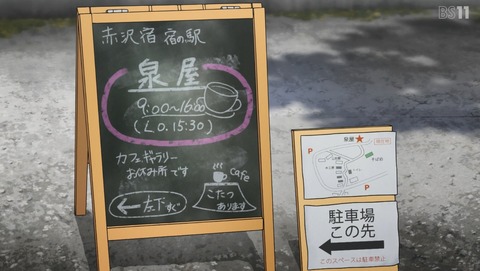 BS11
赤沢宿 宿の駅
泉屋
9:00~16:00
(L.O.15:30)
カフェギャラリー
お休み所です
左下すぐ
cafe
こたつ
あります
泉屋
P
P
駐車場
この先
このスペースは駐車禁止